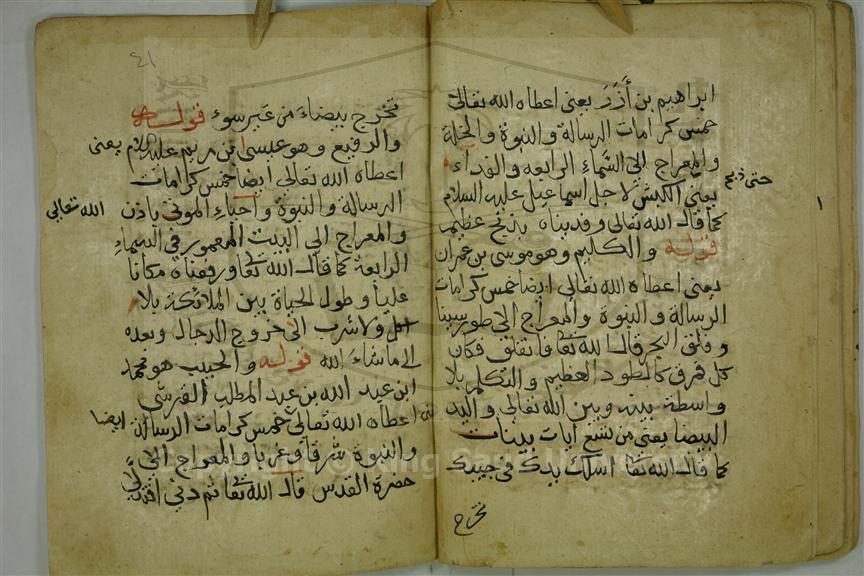 ابراهيم بن أزر يعنى اعطاه الله تعالى
خمس كرامات الرسالة والنبوة والخلة
والمعراج الى السماء الرابعه والفداء
حتى ذبح
يعنى الكبش لاجل اسماعيل عليه السلام
كما قال الله تعالى وفديناه بذبح عظيم
قوله والكليم وهو موسى بن عمران
يعنى اعطاه الله تعالى ايضا خمس كرامات
الرسالة والنبوة والمعراج الى طور سينا
وفلق البحر قال الله تعا فانفلق فكان
كل فرق كالطود العظيم والتكلم بلا
واسطة بينه وبين الله تعالى واليد
البيضا يعنى من تسع ايات بينات
كما قال الله تعا اسلك يدك فى جيبك
تخرج
٤١
تخرج بيضاء من غير سوء قوله
والرفيع وهو عيسى ابن مريم عليه السلام يعنى
اعطاه الله تعالى ايضا خمس كرامات
الرسالة والنبوة واحياء الموتى باذن
الله تعالى
والمعراج الى البيت المعمور فى السماء
الرابعة كما قال الله تعا ورفعناه مكانا
عليا وطول الحياة بين الملائكة بلا
اكل ولا شرب الى خروج الدجال وبعده
الى ما شاء الله قوله والحبيب هو محمد
ابن عبد الله بن عبد المطلب القرشى
اعطاه الله تعالى خمس كرامات الرسالة
ايضا
والنبوة شرقا وغربا والمعراج الى
حضرة القدس قال الله تعا ثم دنى